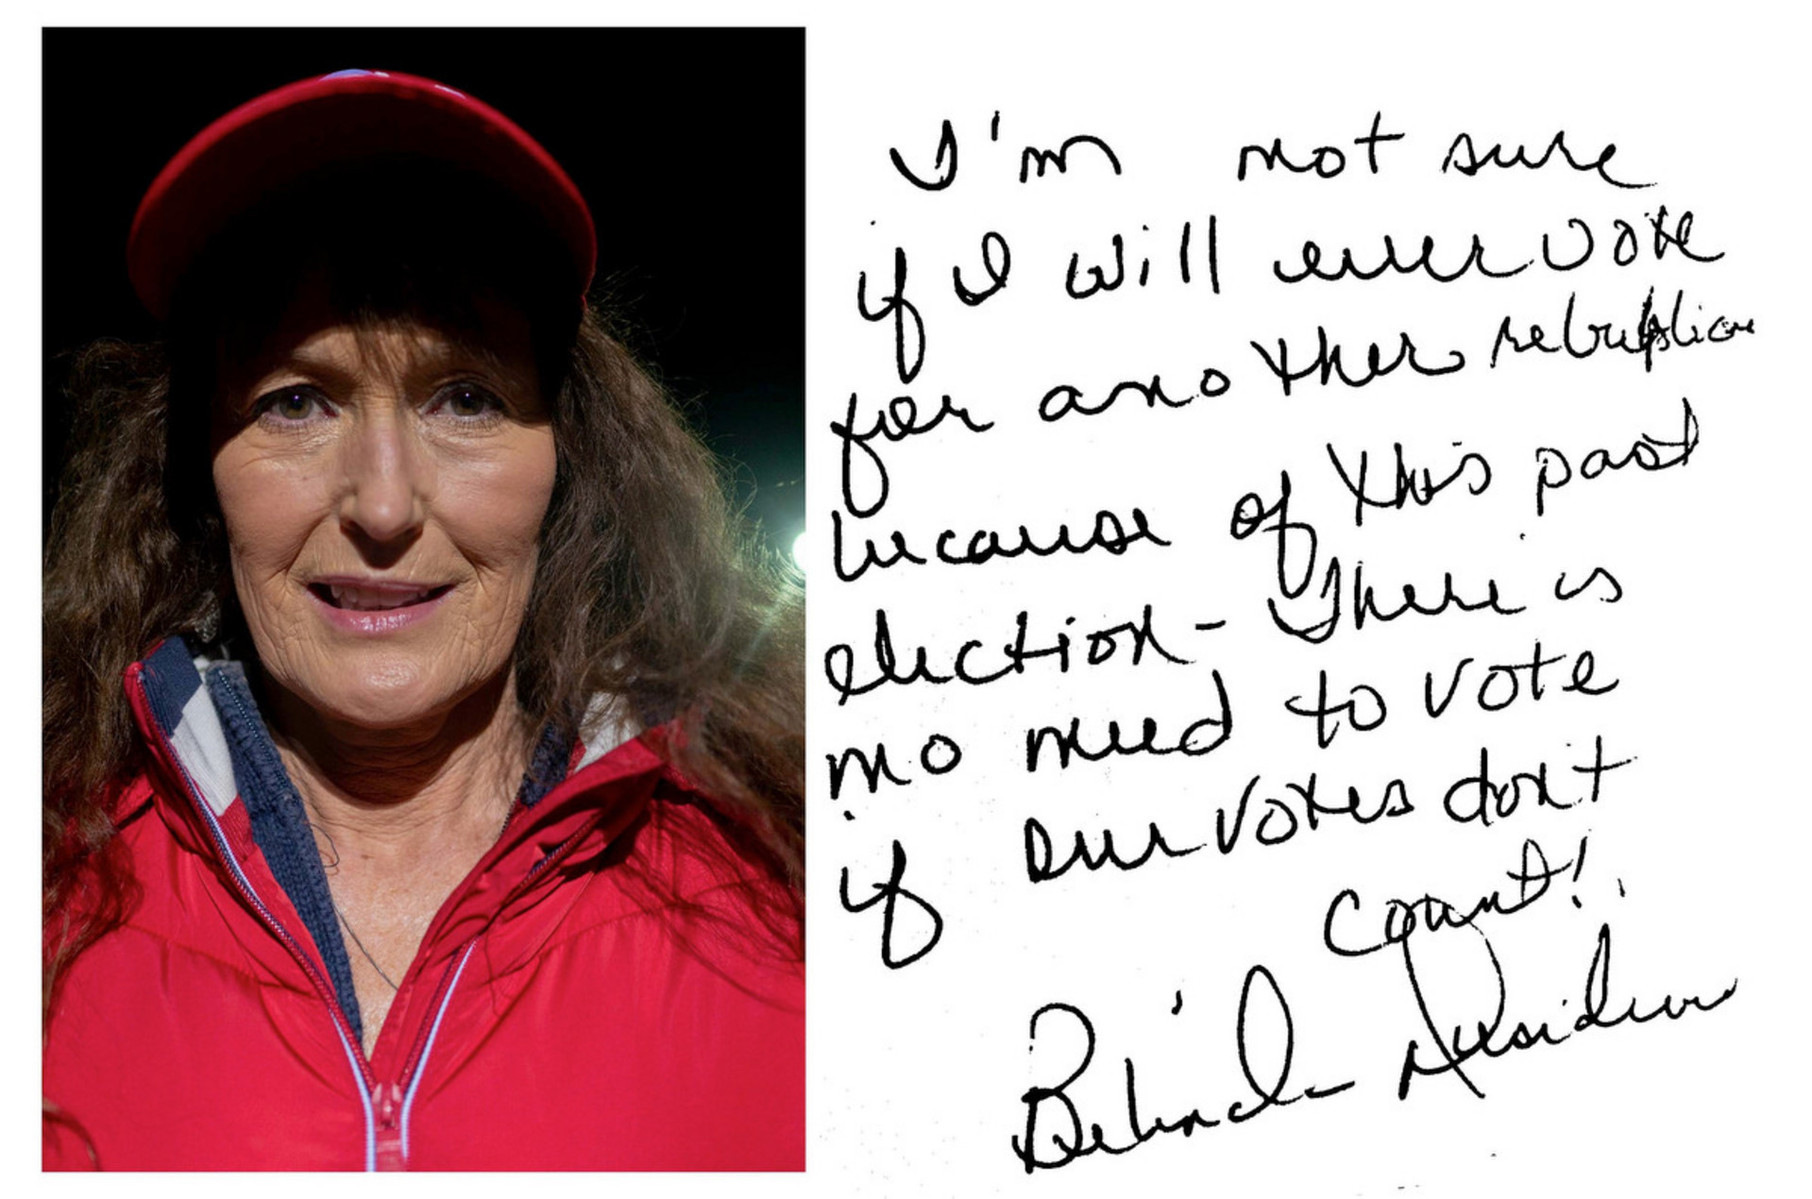 I'm not sure
if I will ever vote
for another rebuplican
because of this past
election - There is
no need to vote
if our votes dont
count!
Belinda